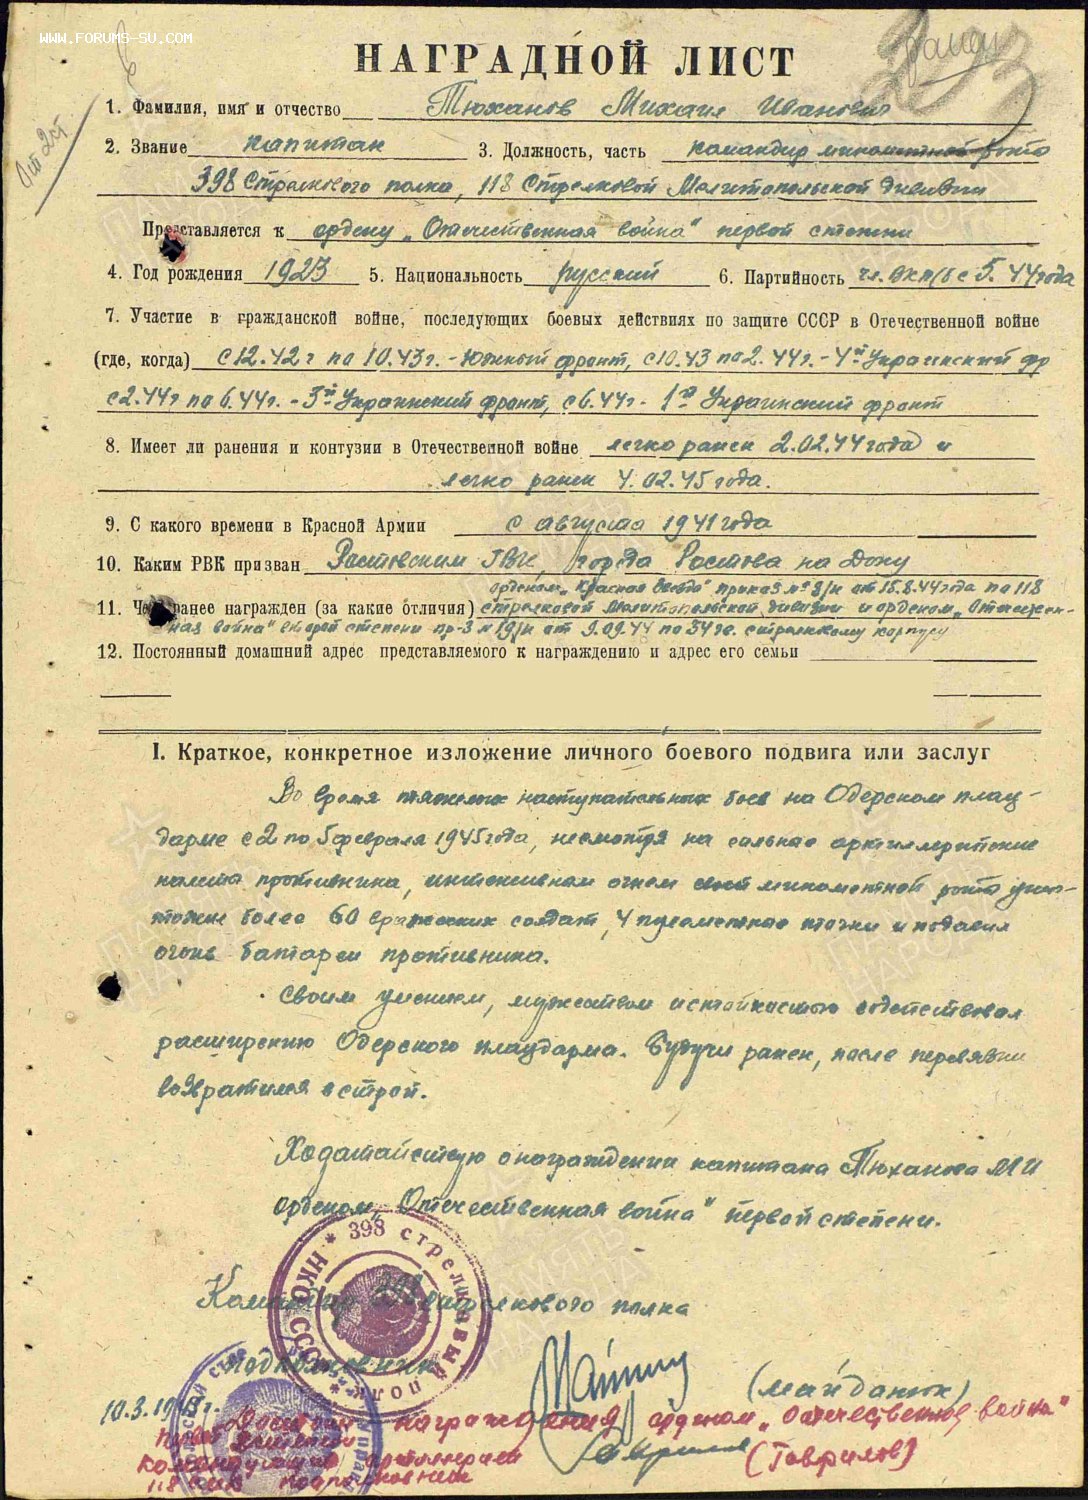 WWW.FORUMS-SU.COM
НАГРАДНОЙ ЛИСТ
1. Фамилия, имя и отчество Тюханов Михаил Иванович
2. Звание капитан 3. Должность, часть командир минометной роты
398 Стрелкового полка, 118 Стрелковой Мелитопольской дивизии
Представляется к ордену „Отечественная война" первой степени
4. Год рождения 1923 5. Национальность русский 6. Партийность чл. ВКП/б с 5.44 года
7. Участие в гражданской войне, последующих боевых действиях по защите СССР в Отечественной войне
(где, когда) с 12.42 г по 10.43 г. - Южный фронт, с 10.43 по 2.44 г. - 4й Украинский фр
с 2.44 г по 6.44 г. - 3й Украинский фронт, с 6.44 г - 1й Украинский фронт
8. Имеет ли ранения и контузии в Отечественной войне легко ранен 2.02.44 года и
легко ранен 4.02.45 года.
9. С какого времени в Красной Армии с августа 1941 года
10. Каким РВК призван Ростовским ГВК, города Ростова на Дону
орденом „Красная Звезда" приказ № 8/н от 15.8.44 года по 118
11. Чем ранее награжден (за какие отличия) стрелковой Мелитопольской дивизии и орденом „Отечествен-
ная война" второй степени пр-з № 19/н от 9.09.44 по 34 гв. стрелковому корпусу
12. Постоянный домашний адрес представляемого к награждению и адрес его семьи
I. Краткое, конкретное изложение личного боевого подвига или заслуг
Во время тяжелых наступательных боев на Одерском плац-
дарме с 2 по 5 февраля 1945 года, несмотря на сильные артиллерийские
налеты противника, интенсивным огнем минометной роты унич-
тожил более 60 вражеских солдат, 4 пулеметные точки и подавил
огонь батареи противника.
Своим умением, мужеством и стойкостью содетствовал
расширению Одерского плацдарма. Будучи ранен, после перевязки
возвратился в строй.
Ходатайствую о награждении капитана Тюханова М И
орденом „Отечественная война" первой степени.
Командир 398 стрелкового полка
подполковник (Майданюк)
398 стрелковый полк
НКО СССР
10.3.1945 г.
Достоин награждения орденом „Отечественная война"
первой степени
Командующий артиллерией
118 подполковник (Гаврилов)